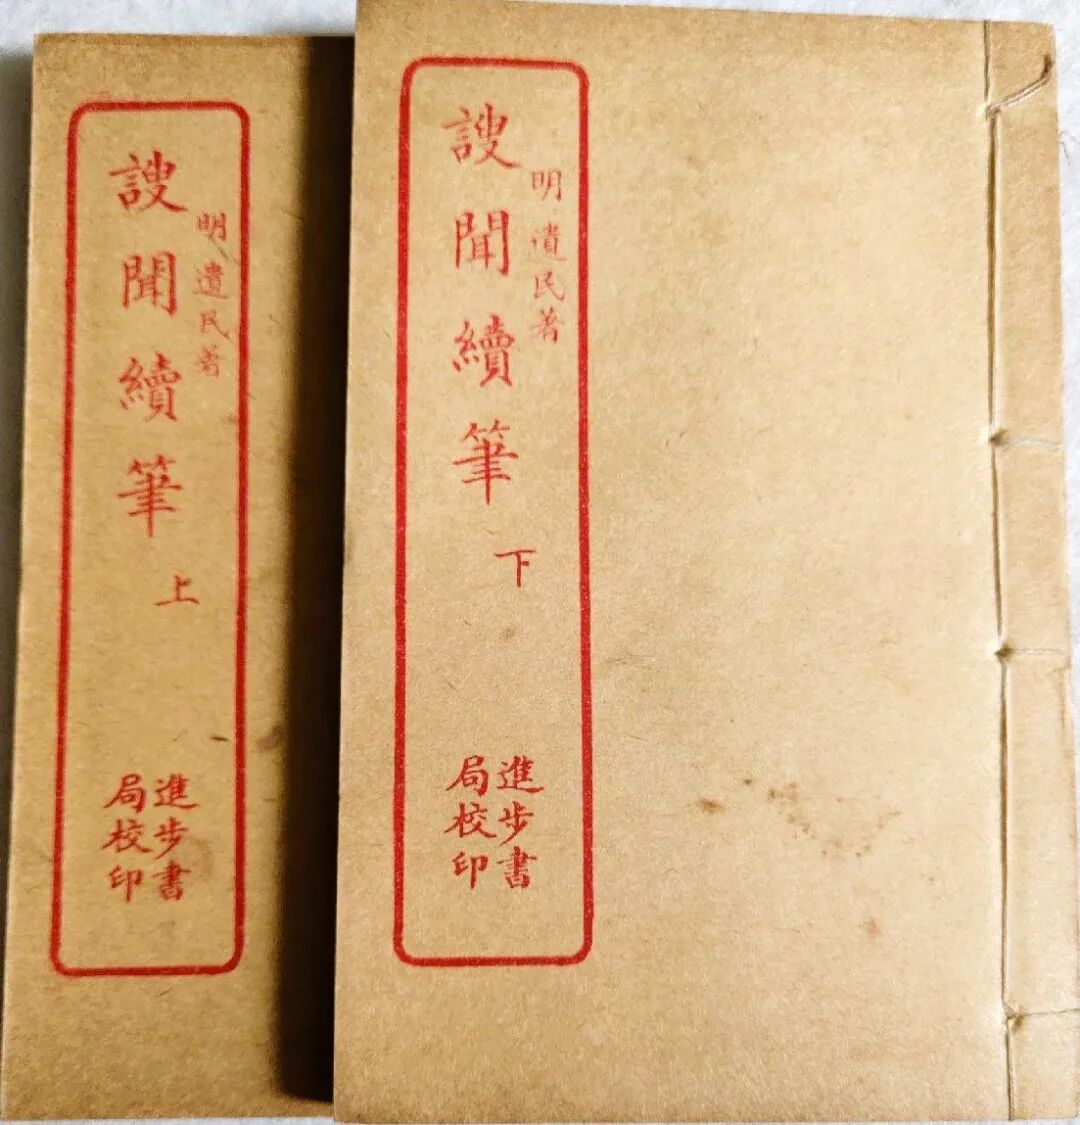 謏聞續筆
明遺民著
上
進步書
局校印
謏聞續筆
明遺民著
下
進步書
局校印